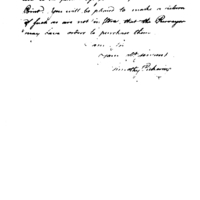 Point. You will be pleased to make a return
of such as are not in Store, that the Purveyor
may have orders to purchase them.
I am, Sir
Your obt servant
Timothy Pickering